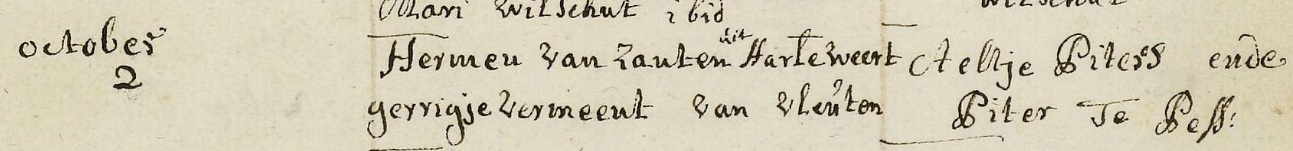 Mari Witschut ibid
october Hermen van zanten uit Harteweert Aeltje Piterss ende
2 gerrigje vermeent van vleuten Piter Te Pess: